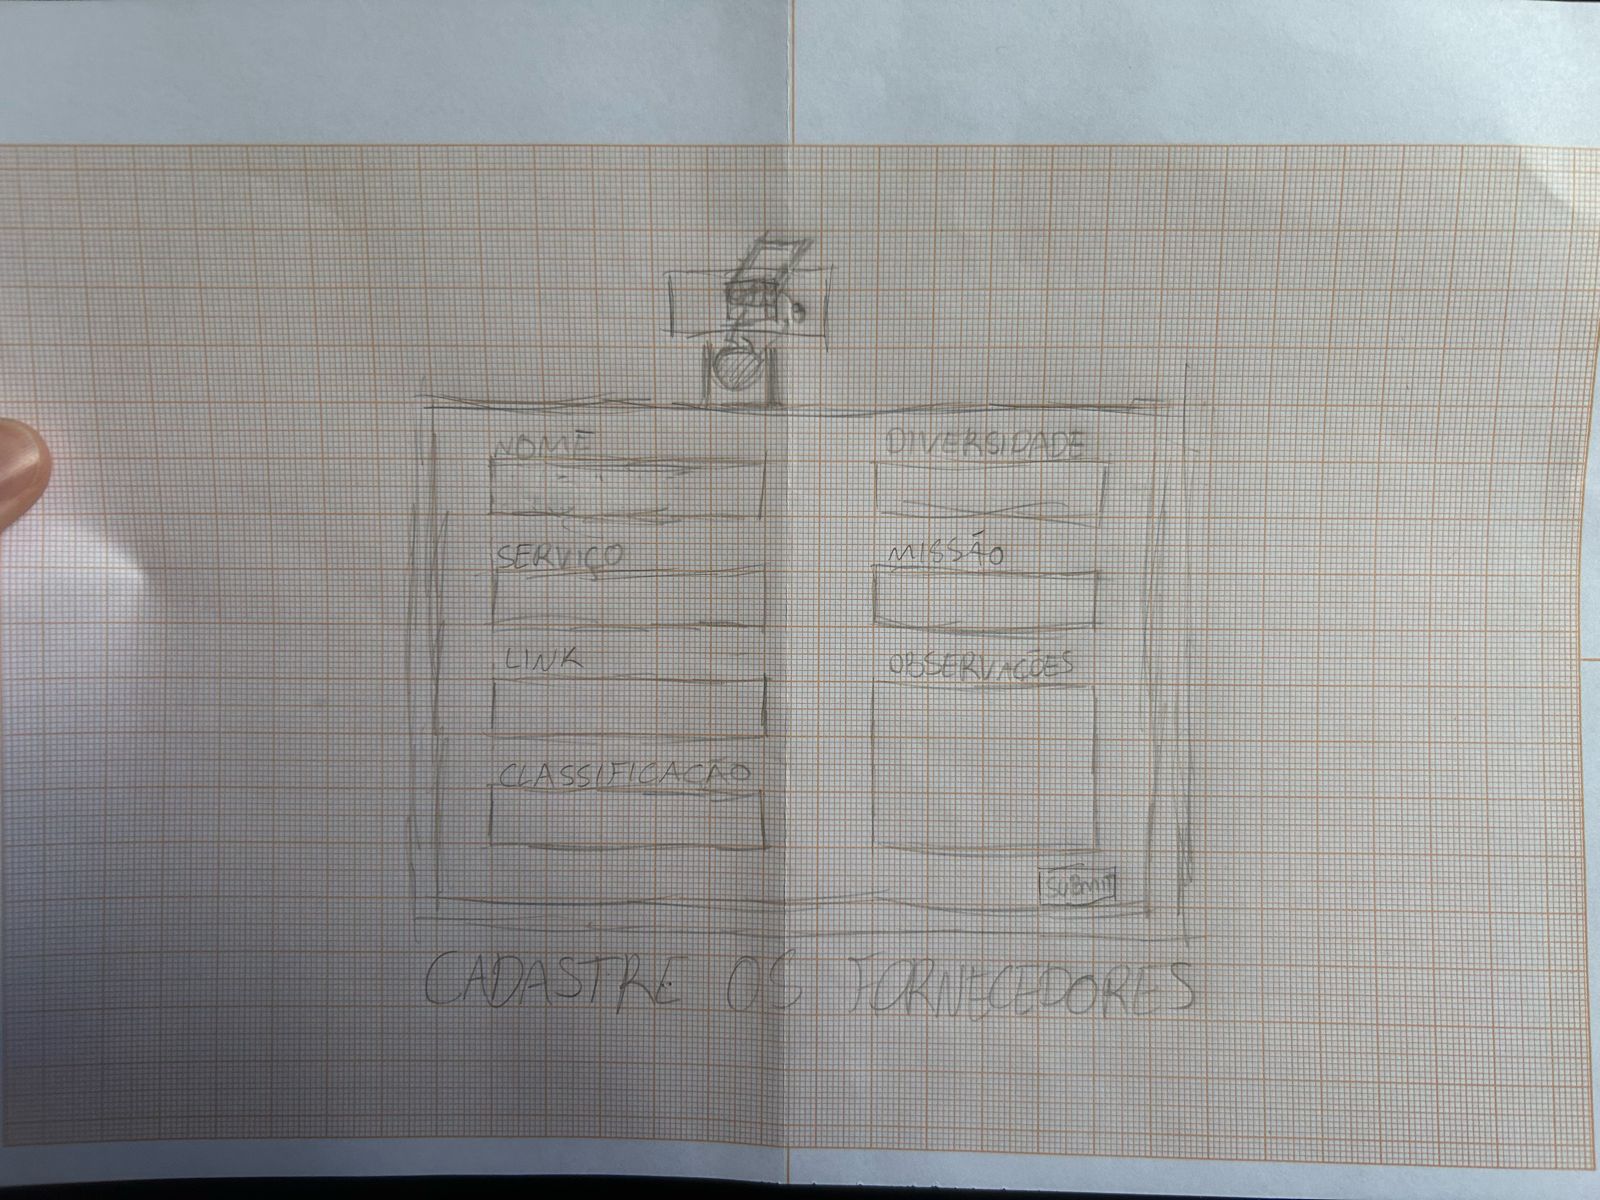 NOME
SERVIÇO
LINK
CLASSIFICAÇÃO
DIVERSIDADE
MISSÃO
OBSERVAÇÕES
SUBMIT
CADASTRE OS FORNECEDORES